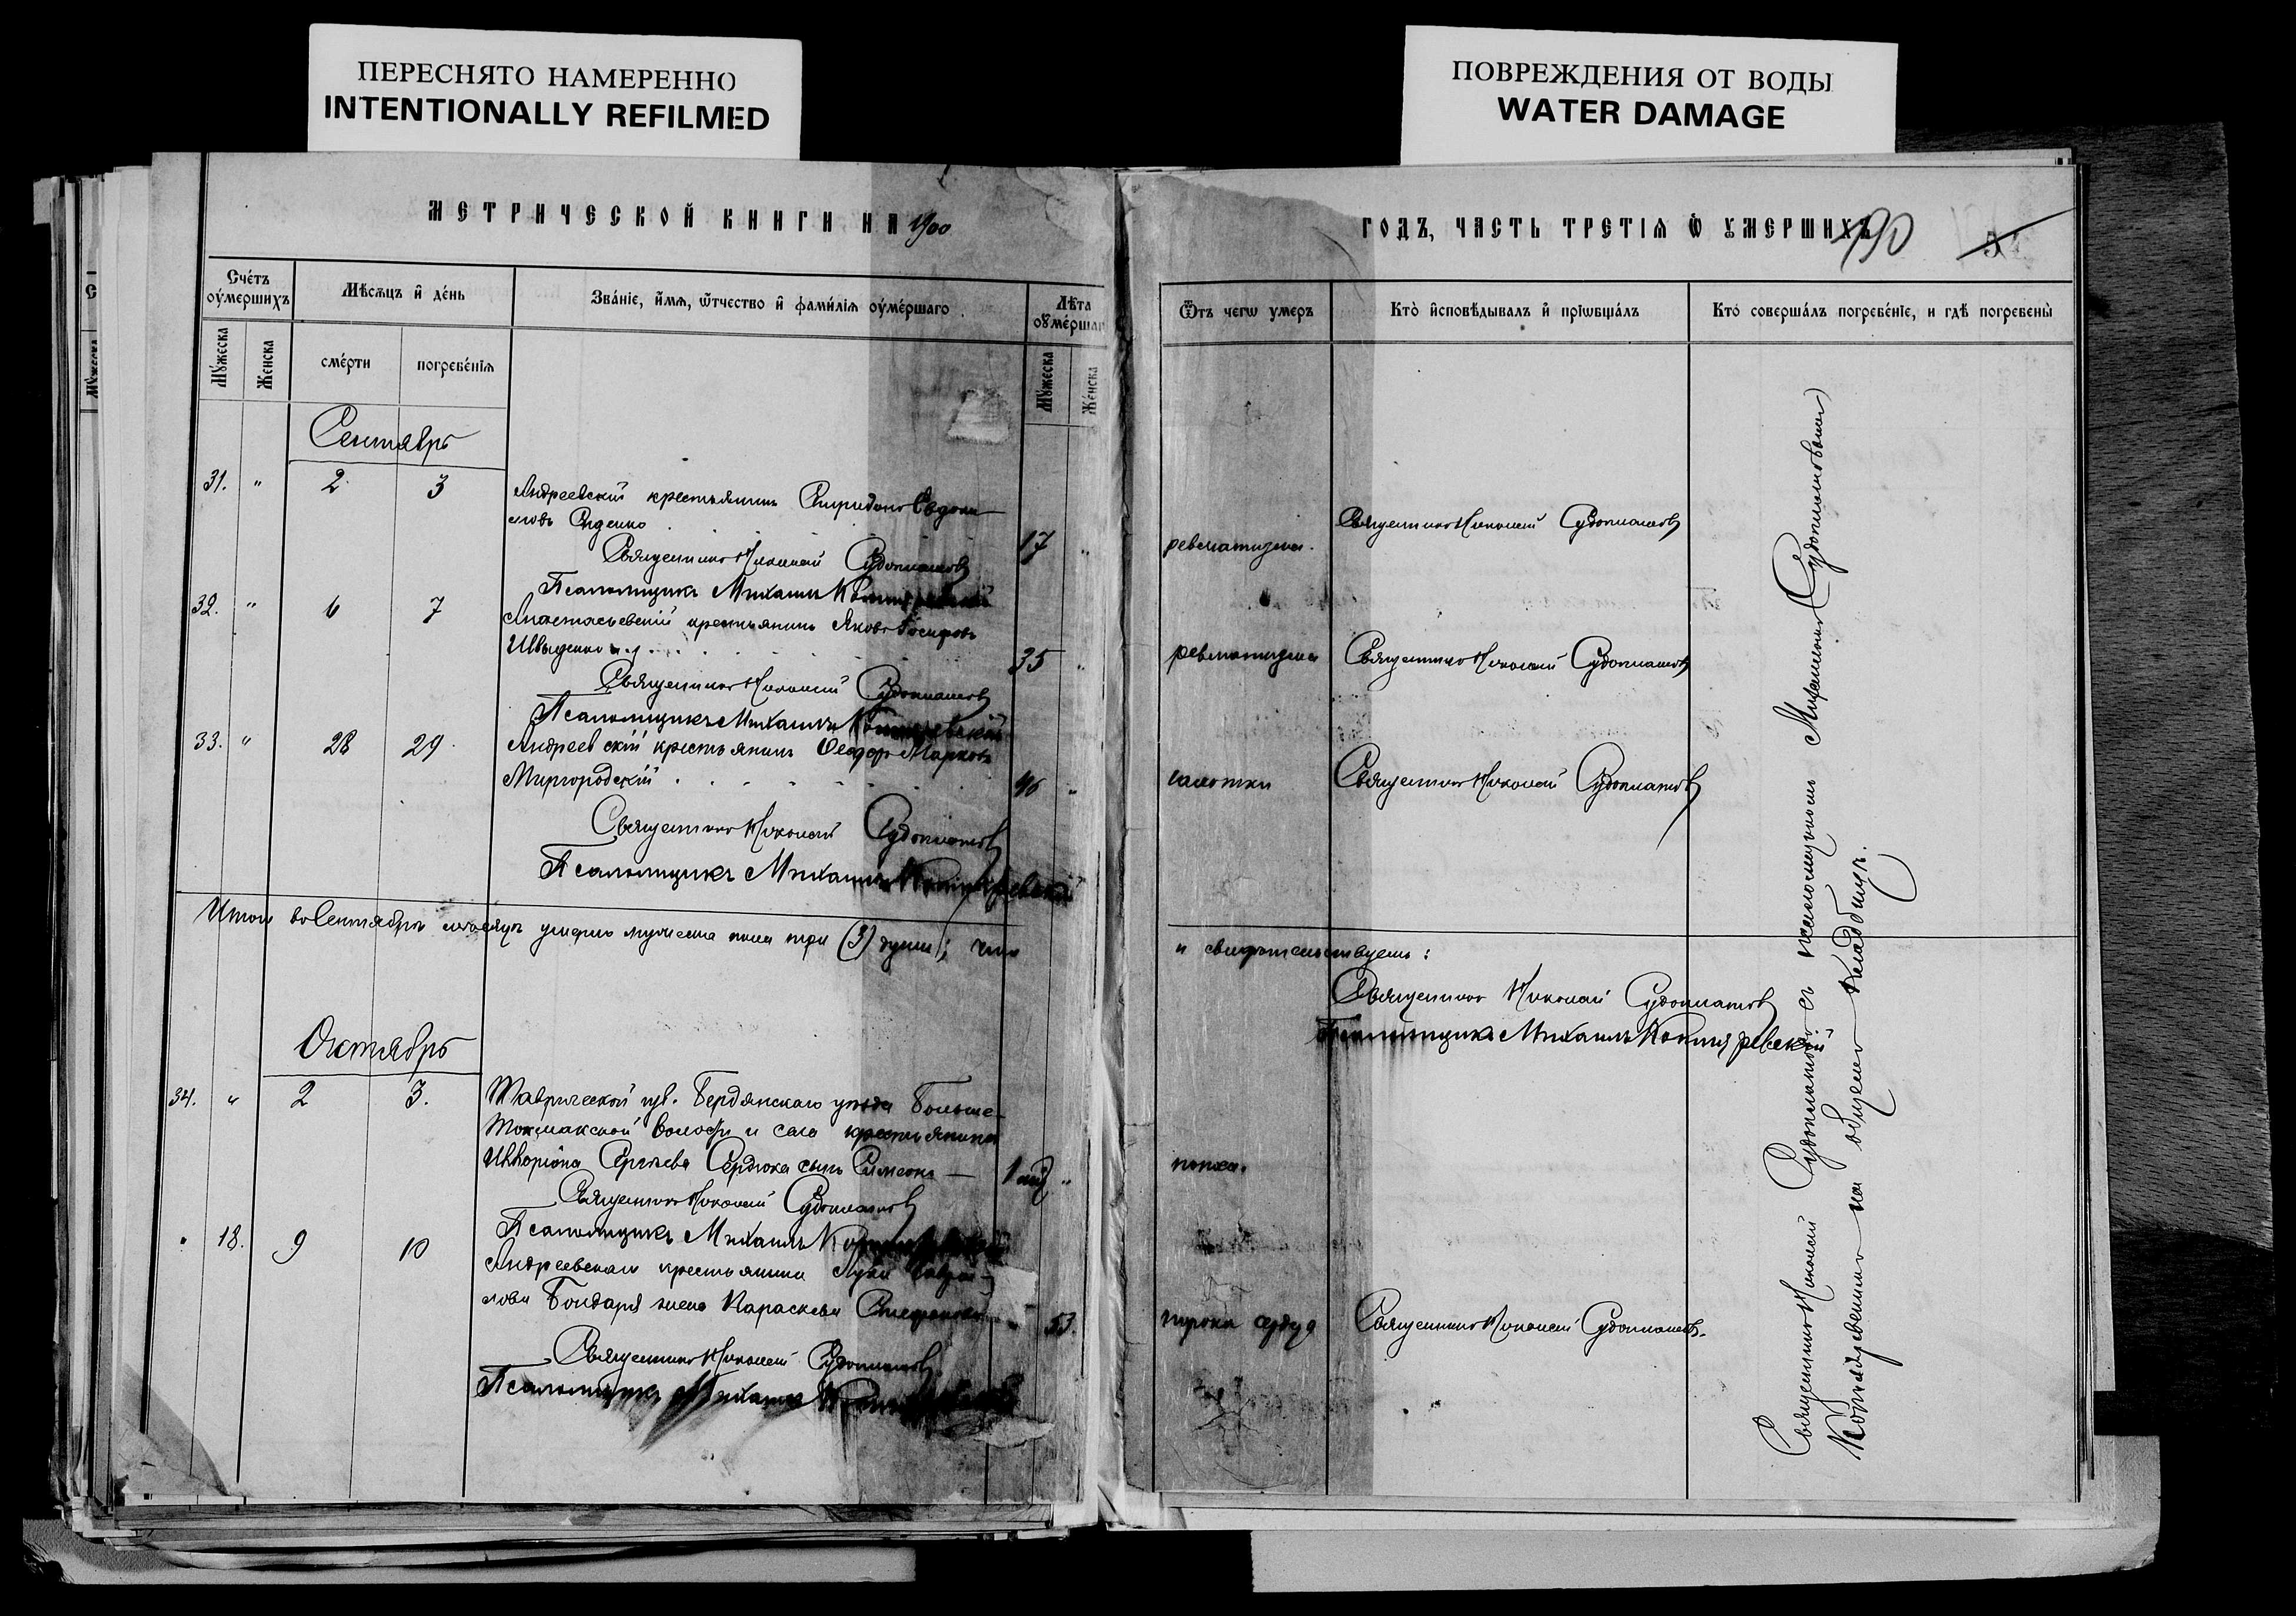 ПЕРЕСНЯТО НАМЕРЕННО
INTENTIONALLY REFILMED
ПОВРЕЖДЕНИЯ ОТ ВОДЫ
WATER DAMAGE
МЕТРИЧЕСКОЙ КНИГИ НА 1900
Счетъ оумершихъ
Мѣсяцъ и день
Званіе, имя, отчество и фамилія оумершаго
Лѣта оумершаг
Мужеска
Женска
смерти
погребенія
Мужеска
Женска
Сентябрь
31. " 2 3 Андреевскій крестьянинъ Спиридонъ Евдоки-
мовъ Сиденко 17 "
Священникъ Николай Судоплатовъ
Псаломщикъ Михаилъ
32. " 6 7 Анастасьевскій крестьянинъ Яковъ Іосифовъ
35 "
Священникъ Николай Судоплатовъ
Псаломщикъ Михаилъ Котляревскій
33. " 28 29 Андреевскій крестьянинъ Ѳеодоръ Марковъ
Миргородскій 46 "
Священникъ Николай Судоплатовъ
Псаломщикъ Михаилъ Котляревскій
Итого въ Сентябрѣ мѣсяцѣ умерло мужеска пола три (3) души; что
Октябрь
34. " 2 3. Таврической губ. Бердянскаго уѣзда Больше-
Токмакской волости и села крестьянина
Сергѣева Сердюка сынъ Симеонъ — 1 "
Священникъ Николай Судоплатовъ
Псаломщикъ Михаилъ
" 18. 9 10 Андреевскаго крестьянина Луки
лова Бондаря жена Параскева " 53.
Священникъ Николай Судоплатовъ
Псаломщикъ Михаилъ
ГОДЪ, ЧАСТЬ ТРЕТІЯ Ѡ УМЕРШИХЪ
190
5
Ѿтъ чегѡ умеръ
Кто исповѣдывалъ и пріѡбщалъ
Кто совершалъ погребеніе, и гдѣ погребены
ревматизма. Священникъ Николай Судоплатовъ
ревматизма Священникъ Николай Судоплатовъ
чахотки Священникъ Николай Судоплатовъ
и свидѣтельствуемъ:
Священникъ Николай Судоплатовъ
Псаломщикъ Михаилъ Котляревскій
поноса.
порока сердца Священникъ Николай Судоплатовъ.
Священникъ Николай Судоплатовъ съ псаломщикомъ Михаиломъ
Котляревскимъ на общемъ кладбищѣ.